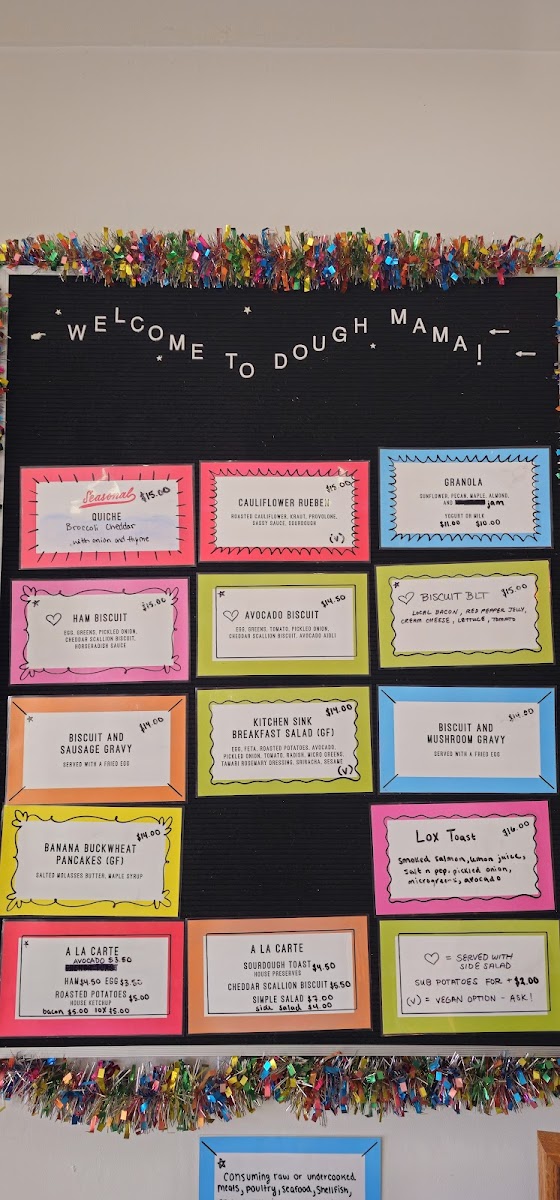 WELCOME TO DOUGH MAMA!
Seasonal $15.00
QUICHE
Broccoli Cheddar
with onion and thyme
$15.00
CAULIFLOWER RUEBEN
ROASTED CAULIFLOWER, KRAUT, PROVOLONE,
SASSY SAUCE, SOURDOUGH
(V)
GRANOLA
SUNFLOWER, PECAN, MAPLE, ALMOND,
AND jam
YOGURT OR MILK
$11.00 $10.00
$15.00
HAM BISCUIT
EGG, GREENS, PICKLED ONION,
CHEDDAR SCALLION BISCUIT,
HORSERADISH SAUCE
$14.50
AVOCADO BISCUIT
EGG, GREENS, TOMATO, PICKLED ONION,
CHEDDAR SCALLION BISCUIT, AVOCADO AIOLI
BISCUIT BLT $15.00
LOCAL BACON, RED PEPPER JELLY,
CREAM CHEESE, LETTUCE, TOMATO
$14.00
BISCUIT AND
SAUSAGE GRAVY
SERVED WITH A FRIED EGG
$14.00
KITCHEN SINK
BREAKFAST SALAD (GF)
EGG, FETA, ROASTED POTATOES, AVOCADO,
PICKLED ONION, TOMATO, RADISH, MICRO GREENS,
TAMARI ROSEMARY DRESSING, SRIRACHA, SESAME
(V)
$14.00
BISCUIT AND
MUSHROOM GRAVY
SERVED WITH A FRIED EGG
$14.00
BANANA BUCKWHEAT
PANCAKES (GF)
SALTED MOLASSES BUTTER, MAPLE SYRUP
Lox Toast $16.00
smoked salmon, lemon juice,
salt n pep, pickled onion,
microgreens, avocado
A LA CARTE
AVOCADO $3.50
HAM $4.50 EGG $3.50
ROASTED POTATOES $5.00
HOUSE KETCHUP
bacon $5.00 lox $5.00
A LA CARTE
SOURDOUGH TOAST $4.50
HOUSE PRESERVES
CHEDDAR SCALLION BISCUIT $5.50
SIMPLE SALAD $7.00
side salad $4.00
= SERVED WITH
SIDE SALAD
SUB POTATOES FOR +$2.00
(V) = VEGAN OPTION - ASK!
Consuming raw or undercooked
meals, poultry, seafood, shellfish,